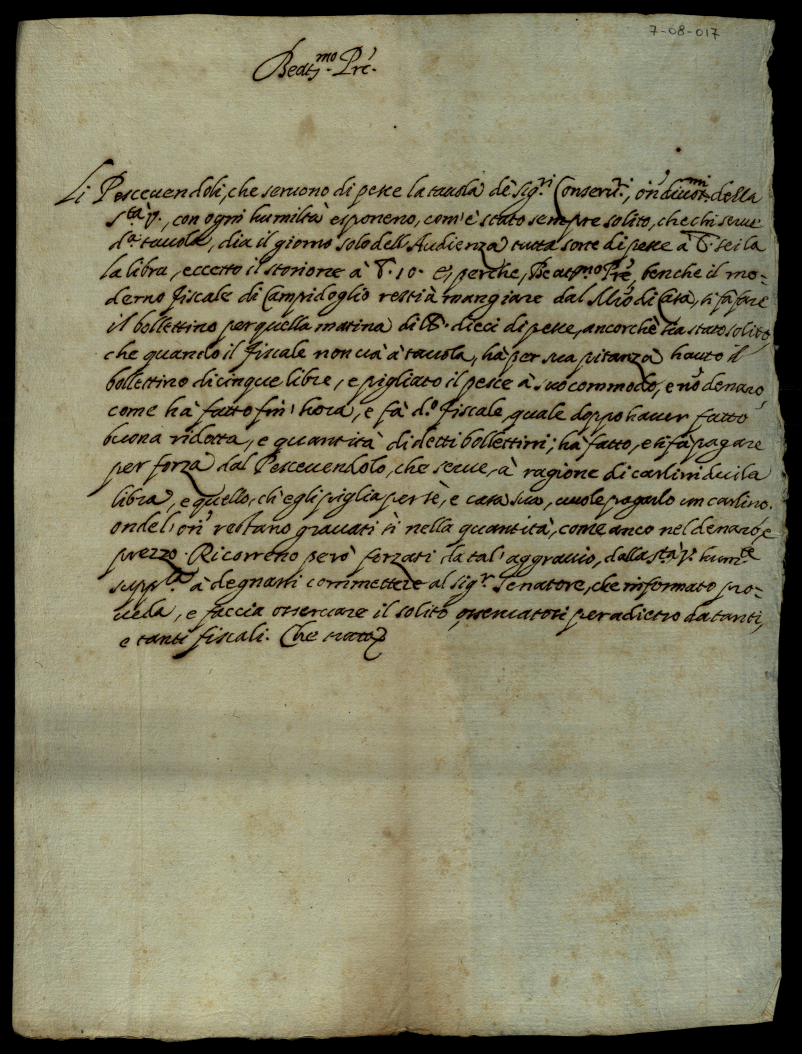 7-08-017
Beat.mo Pre.
Li Pescevendoli, che servono di pesce la tavola de sig.ri Conserv.ri, or̃i divot.mi della
S.tà V., con ogni humiltà esponeno, com'è stato sempre solito, che chi serve
d.a tavola, dia il giorno solo dell'Audienza tutta sorte di pesce à b. sei la
la libra, eccetto il storione à b. 10. E perche, Beat.mo Pre, benche il mo=
derno fiscale di Campidoglio resti à mangiare dal M.ro di Casa, si fà fare
il bollettino per quella matina di lb. dieci di pesce, ancorchè sia stato solito,
che quando il fiscale non và à tavola, hà per sua pitanza hauto il
bollettino di cinque libre, e pigliato il pesce à suo commodo, e nõ denaro,
come hà fatto fin'hora, e fà d.o fiscale, quale doppo haver fatto
buona ridotta, e quantità di detti bollettini; hà fatto, e si fà pagare
per forza dal Pescevendolo, che serve, à ragione di carlini dui la
libra, e quello, ch'egli piglia per sè, e casa sua, vuole pagarlo un carlino.
onde l'or̃i restano gravati sì nella quantità, come anco nel denaro, e
prezzo. Ricorreno però forzati da tal'aggravio, dalla S.tà V. hum.te
supp.la à degnarsi commettere al sig.r Senatore, che informato pro=
veda, e faccia osservare il solito osservatosi per adietro da tanti,
e tanti fiscali. Che